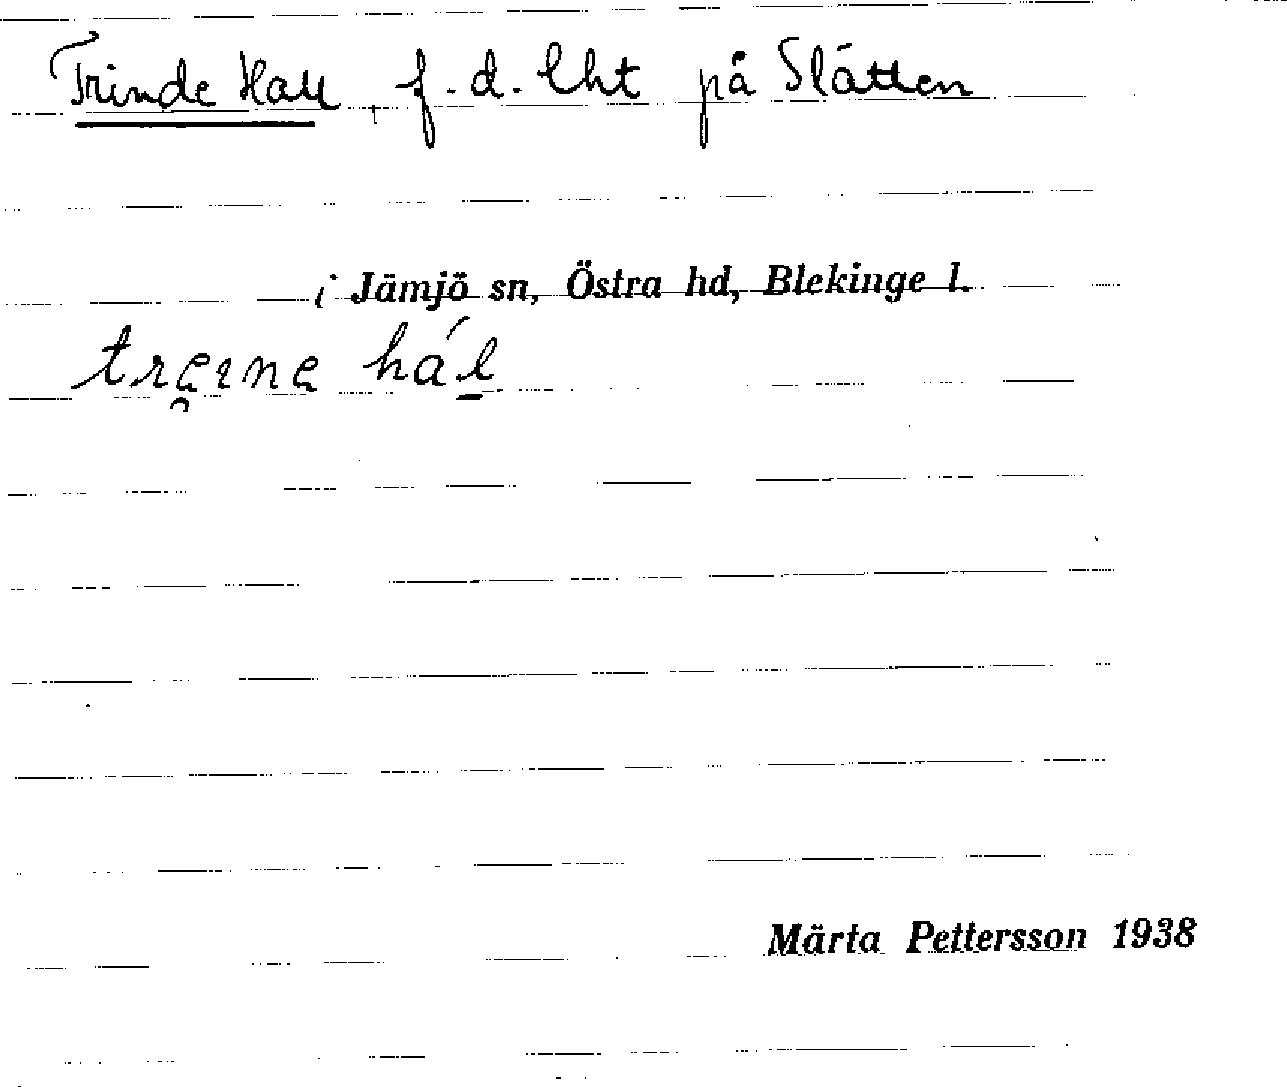 Trinde Hall, f.d. lht på Slätten
i Jämjö sn, Östra hd, Blekinge l.
Märta Pettersson 1938